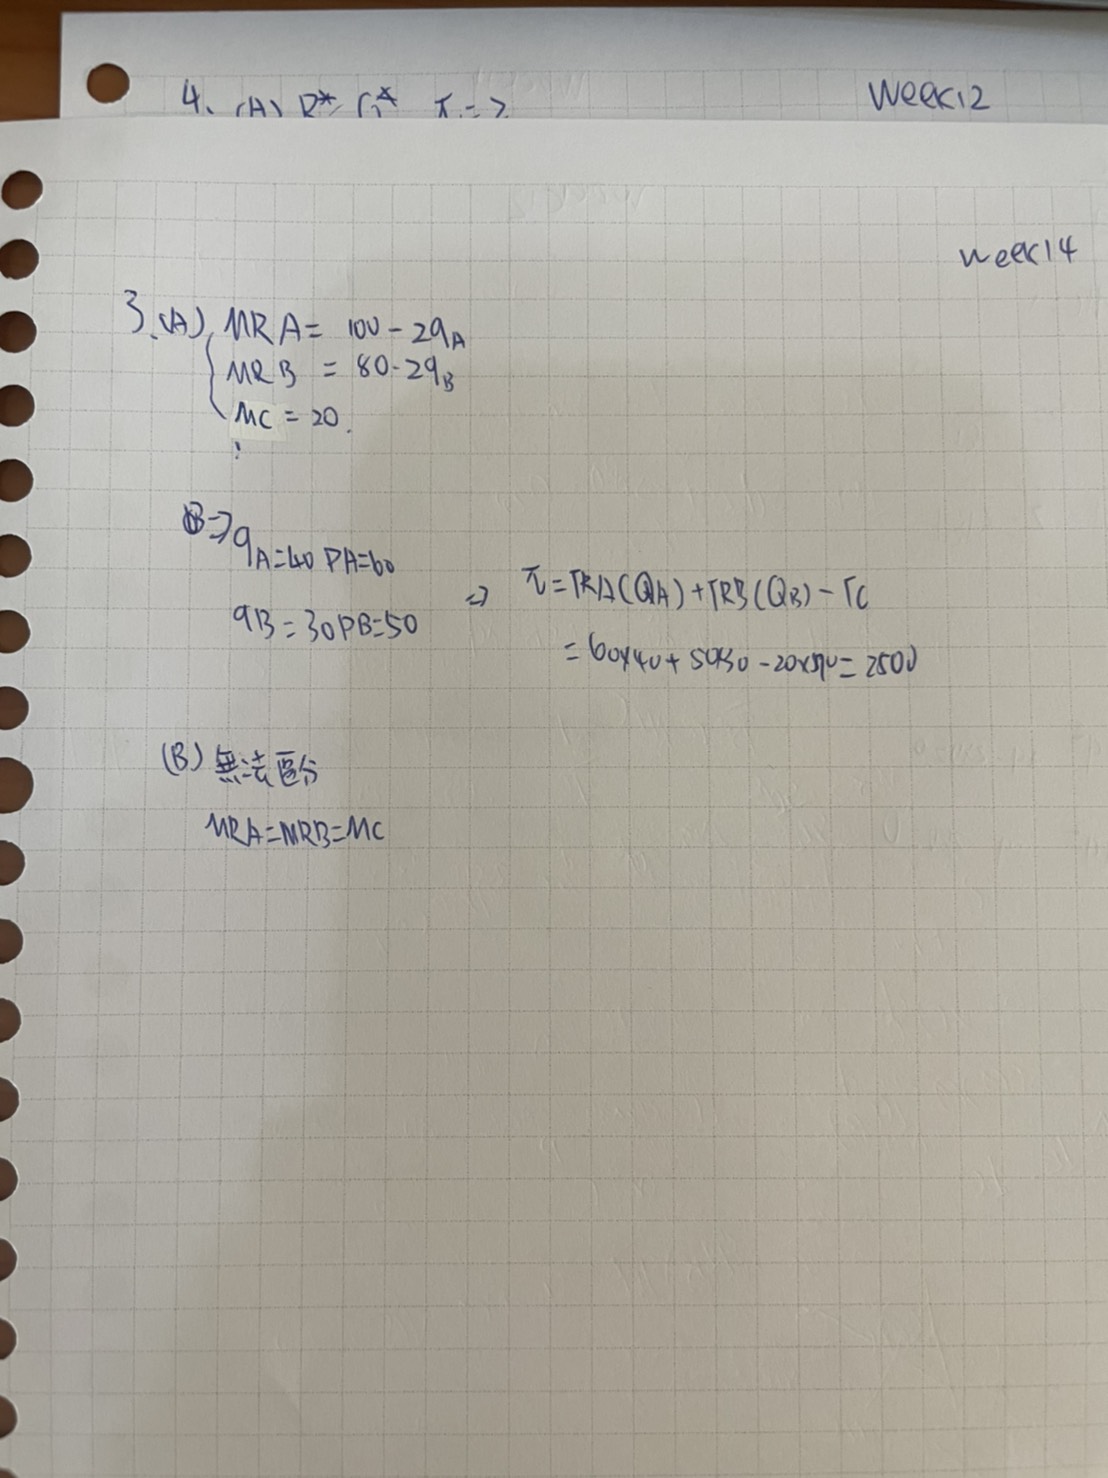 4. (A) P* Q* π = ?
Week12
week14
3.(A) MRA = 100 - 2qA
MRB = 80-2qB
MC = 20.
⇒ qA=40 PA=60
qB=30 PB=50
⇒ π=TRA(QA)+TRB(QB)-TC
= 60×40 + 50×30 - 20×70 = 2500
(B) 無法區分
MRA=MRB=MC